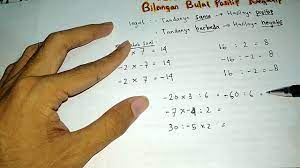 Bilangan Bulat Positif Negatif
Ingat : · Tandanya sama → Hasilnya positif
· Tandanya berbeda → Hasilnya negatif
soal
× 7 = -14
-2 × 7 = -14
16 : 2 = 8
16 : -2 = -8
-20 × 3 : 6 = -60 : 6 =
-7 × -4 : 2 =
30 : -5 × 2 =